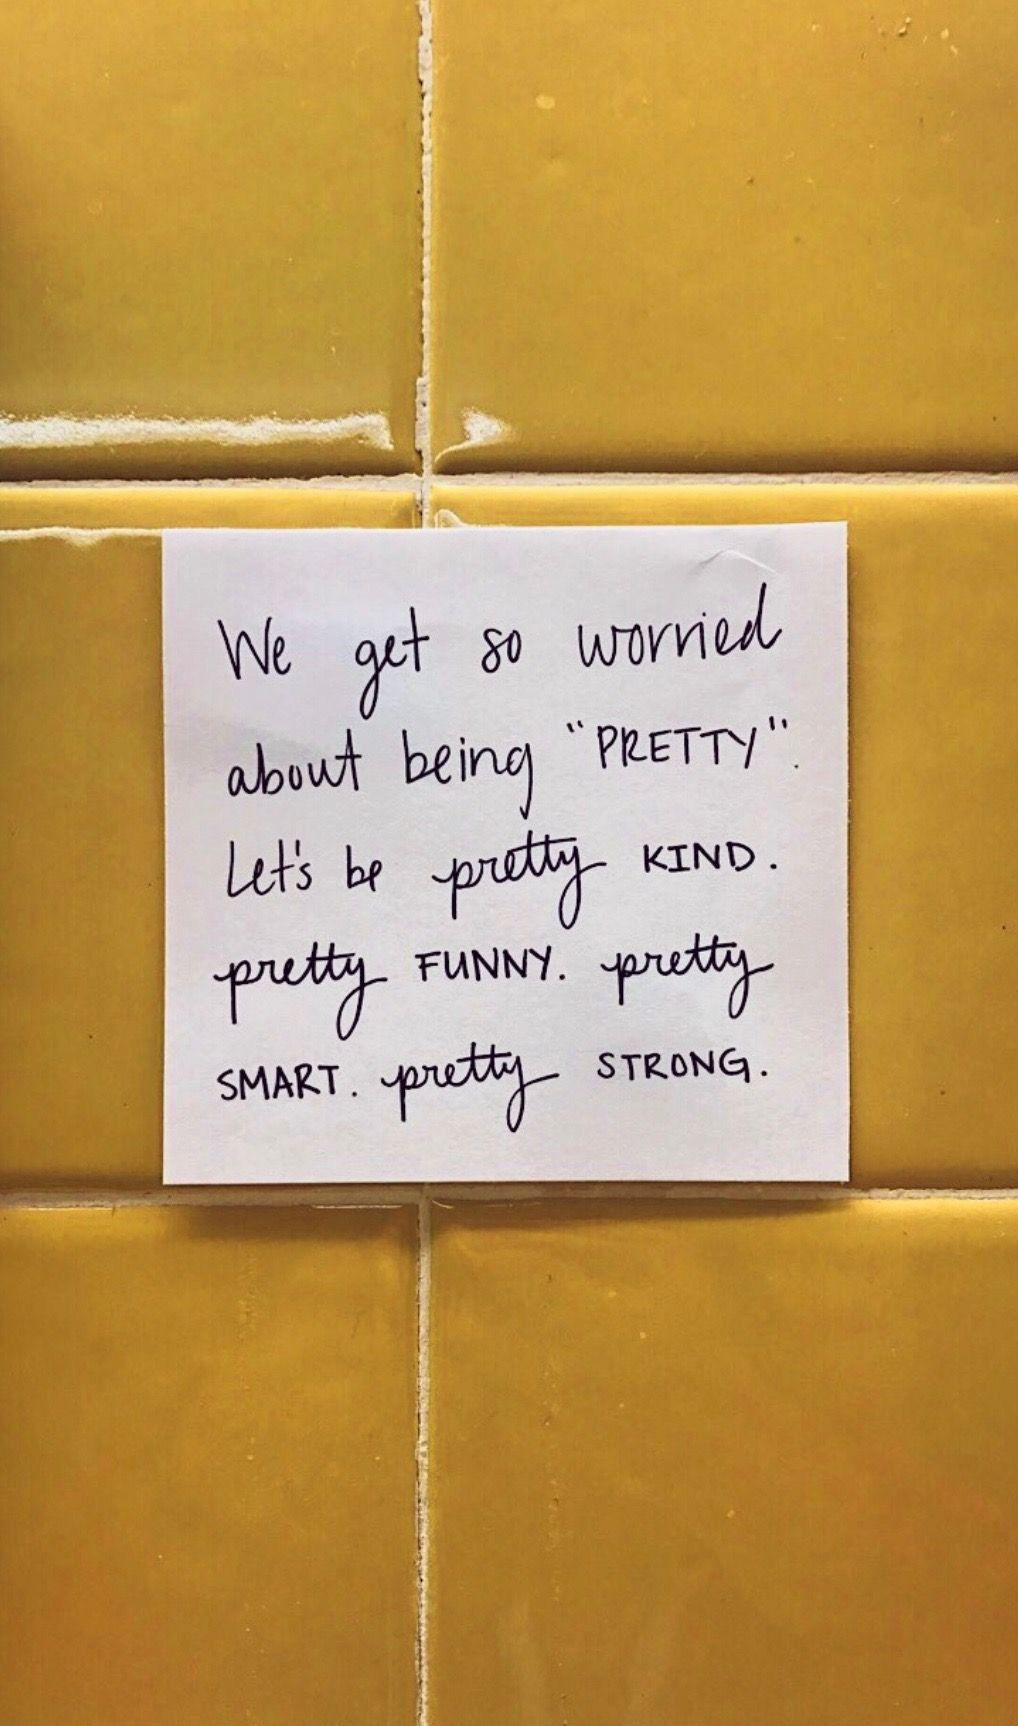 We get so worried
about being "PRETTY".
Let's be pretty KIND.
pretty FUNNY. pretty
SMART. pretty STRONG.